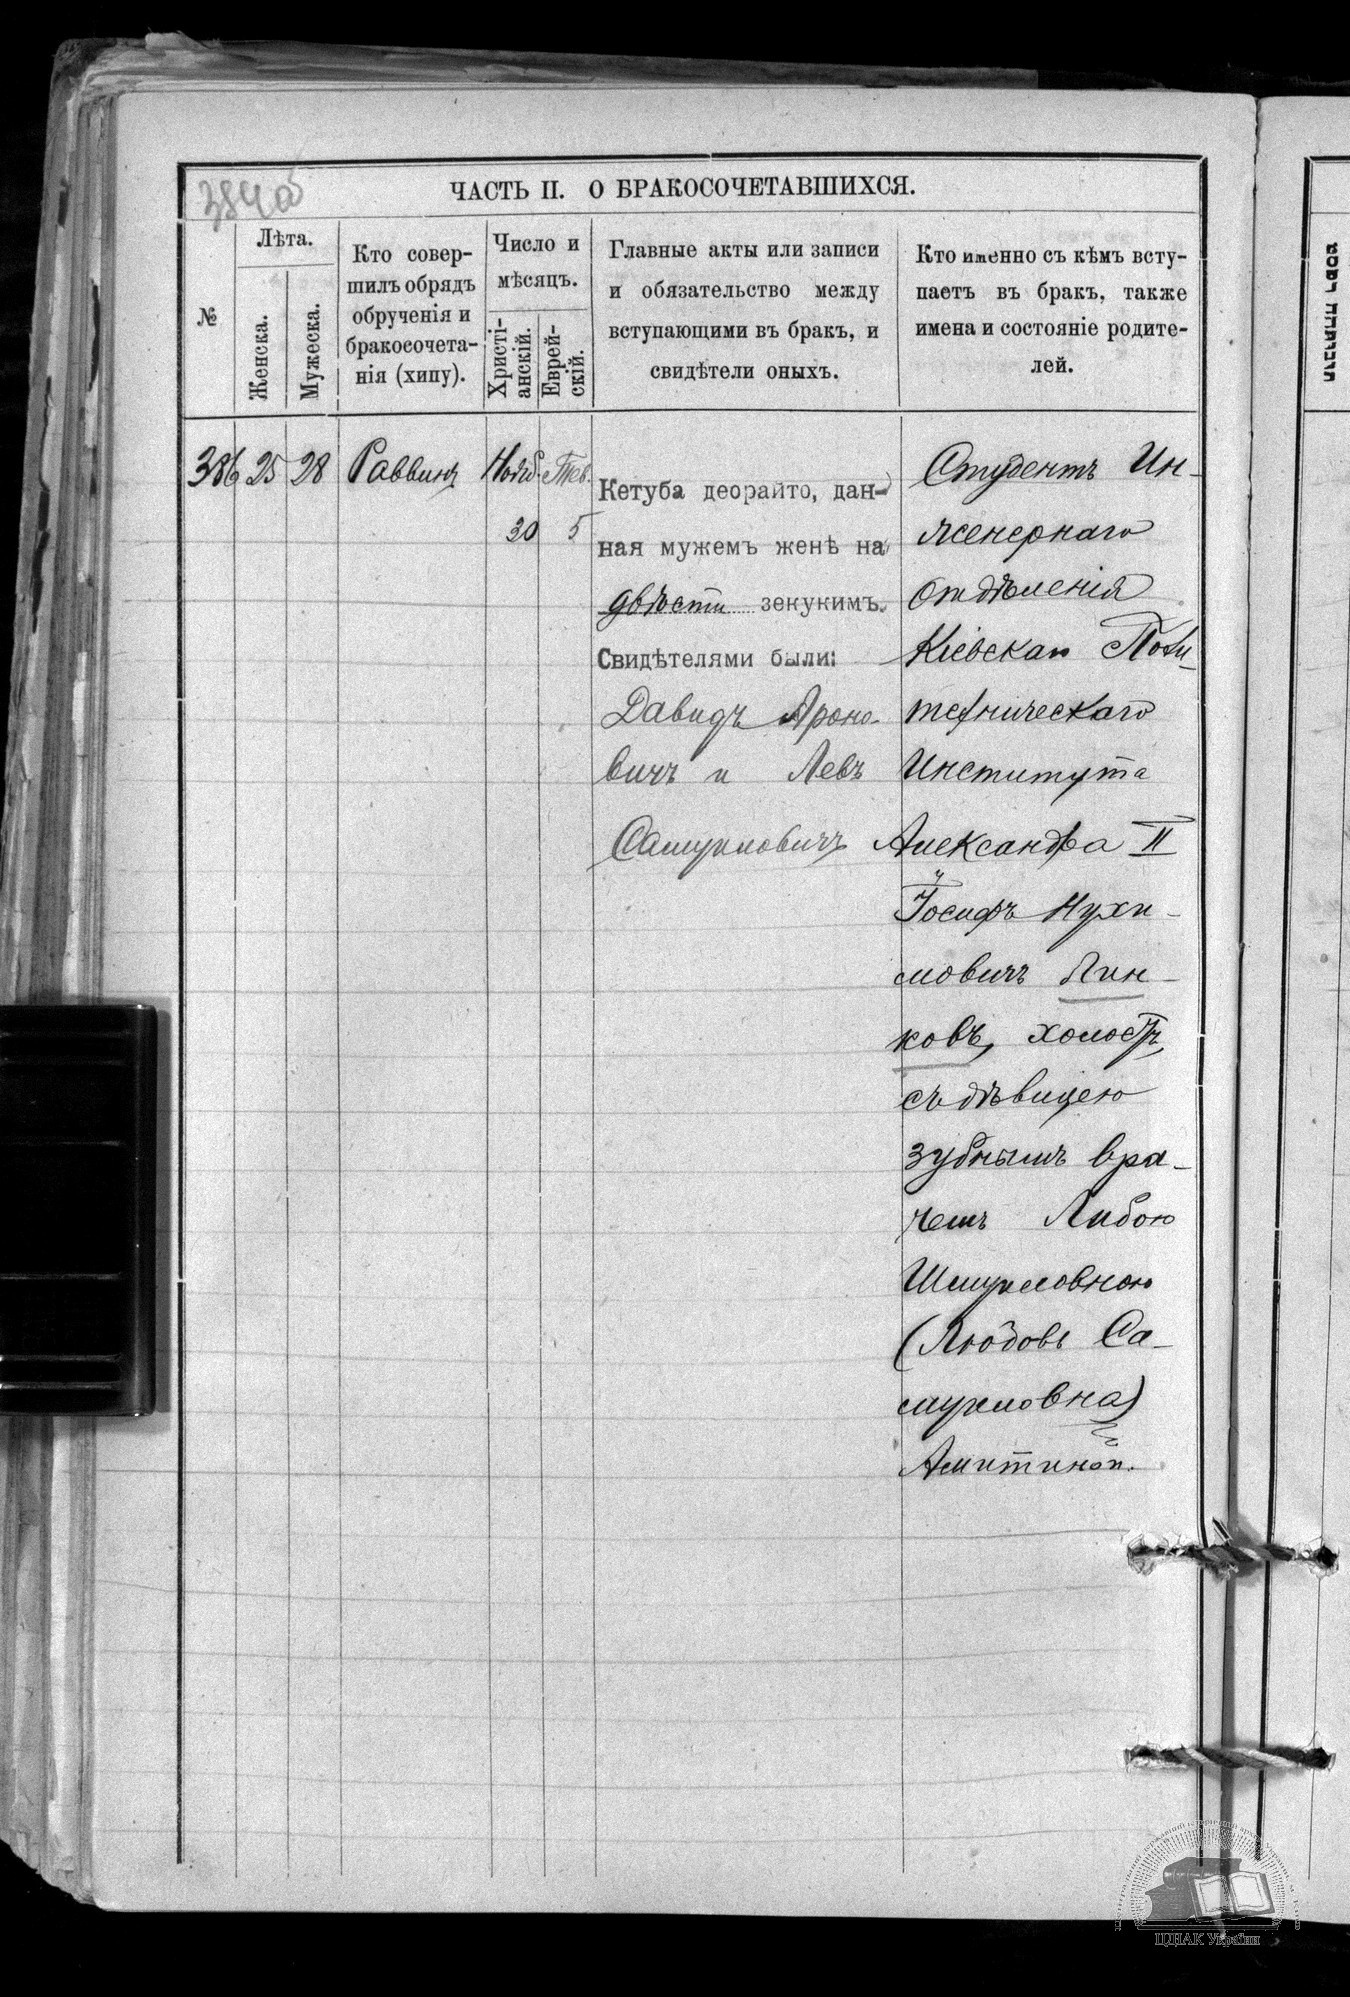 384об
ЧАСТЬ II. О БРАКОСОЧЕТАВШИХСЯ.
№
Лѣта.
Женска.
Мужеска.
Кто совер-
шилъ обрядъ
обрученія и
бракосочета-
нія (хипу).
Число и
мѣсяцъ.
Христі-
анскій.
Еврей-
скій.
Главные акты или записи
и обязательство между
вступающими въ бракъ, и
свидѣтели оныхъ.
Кто именно съ кѣмъ всту-
паетъ въ бракъ, также
имена и состояніе родите-
лей.
386 25 28 Раввинъ Ноябр. Тев.
30 5
Кетуба деорайто, дан-
ная мужемъ женѣ на
двѣсти зекукимъ.
Свидѣтелями были:
Давидъ Ароно-
вичъ и Левъ
Самуиловичъ
Студентъ Ин-
женернаго
Отдѣленія
Кіевскаго Поли-
техническаго
Института
Александра II
Іосифъ Нухи-
мовичъ Лин-
ковъ, холостъ,
съ дѣвицею
зубнымъ вра-
чемъ Либою
Шмуиловною
(Любовь Са-
муиловна)
Амитиной.
ЦДІАК України